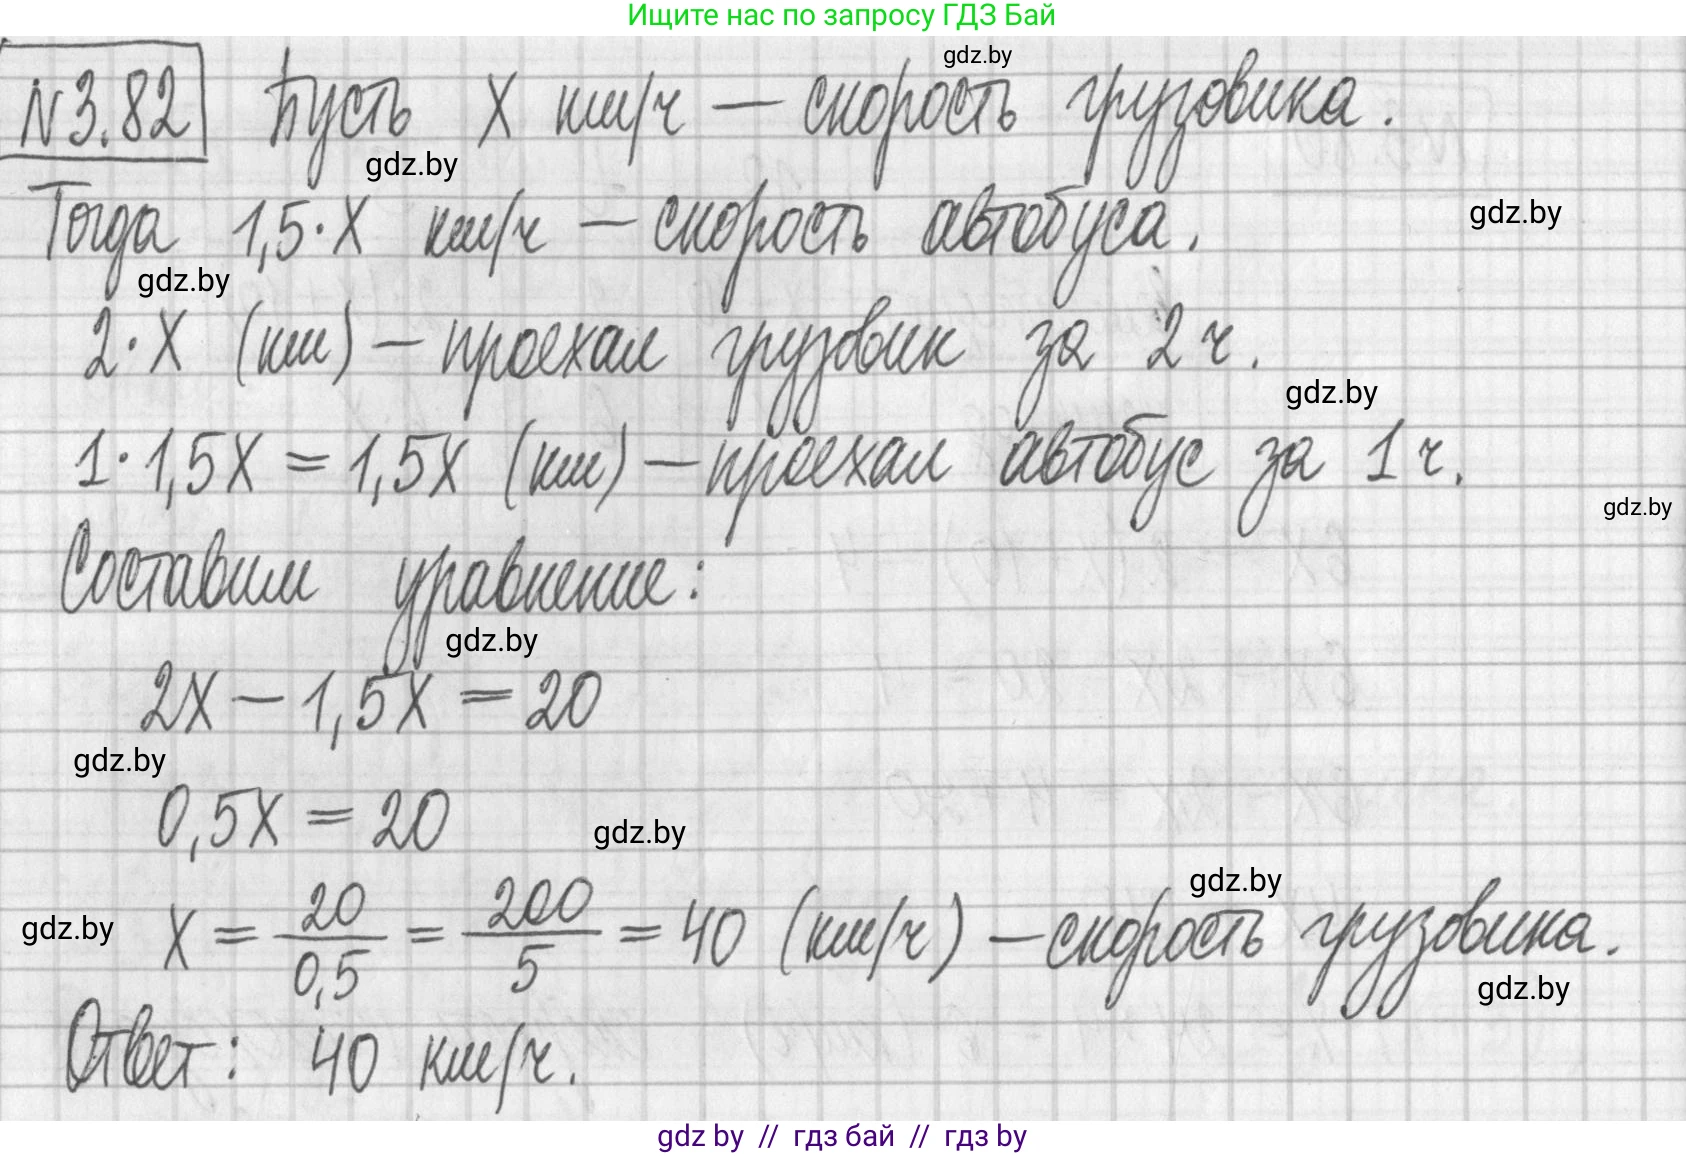 Ищите нас по запросу ГДЗ Бай
gdz.by
№3.82 Пусть x км/ч — скорость грузовика.
gdz.by
Тогда 1,5·x км/ч — скорость автобуса.
gdz.by
gdz.by
2·x (км) — проехал грузовик за 2 ч.
gdz.by
1·1,5x = 1,5x (км) — проехал автобус за 1 ч.
gdz.by
Составим уравнение:
gdz.by
2x − 1,5x = 20
gdz.by
0,5x = 20
gdz.by
gdz.by
gdz.by
x = 20/0,5 = 200/5 = 40 (км/ч) — скорость грузовика.
gdz.by
Ответ: 40 км/ч.
gdz by // гдз бай // гдз by